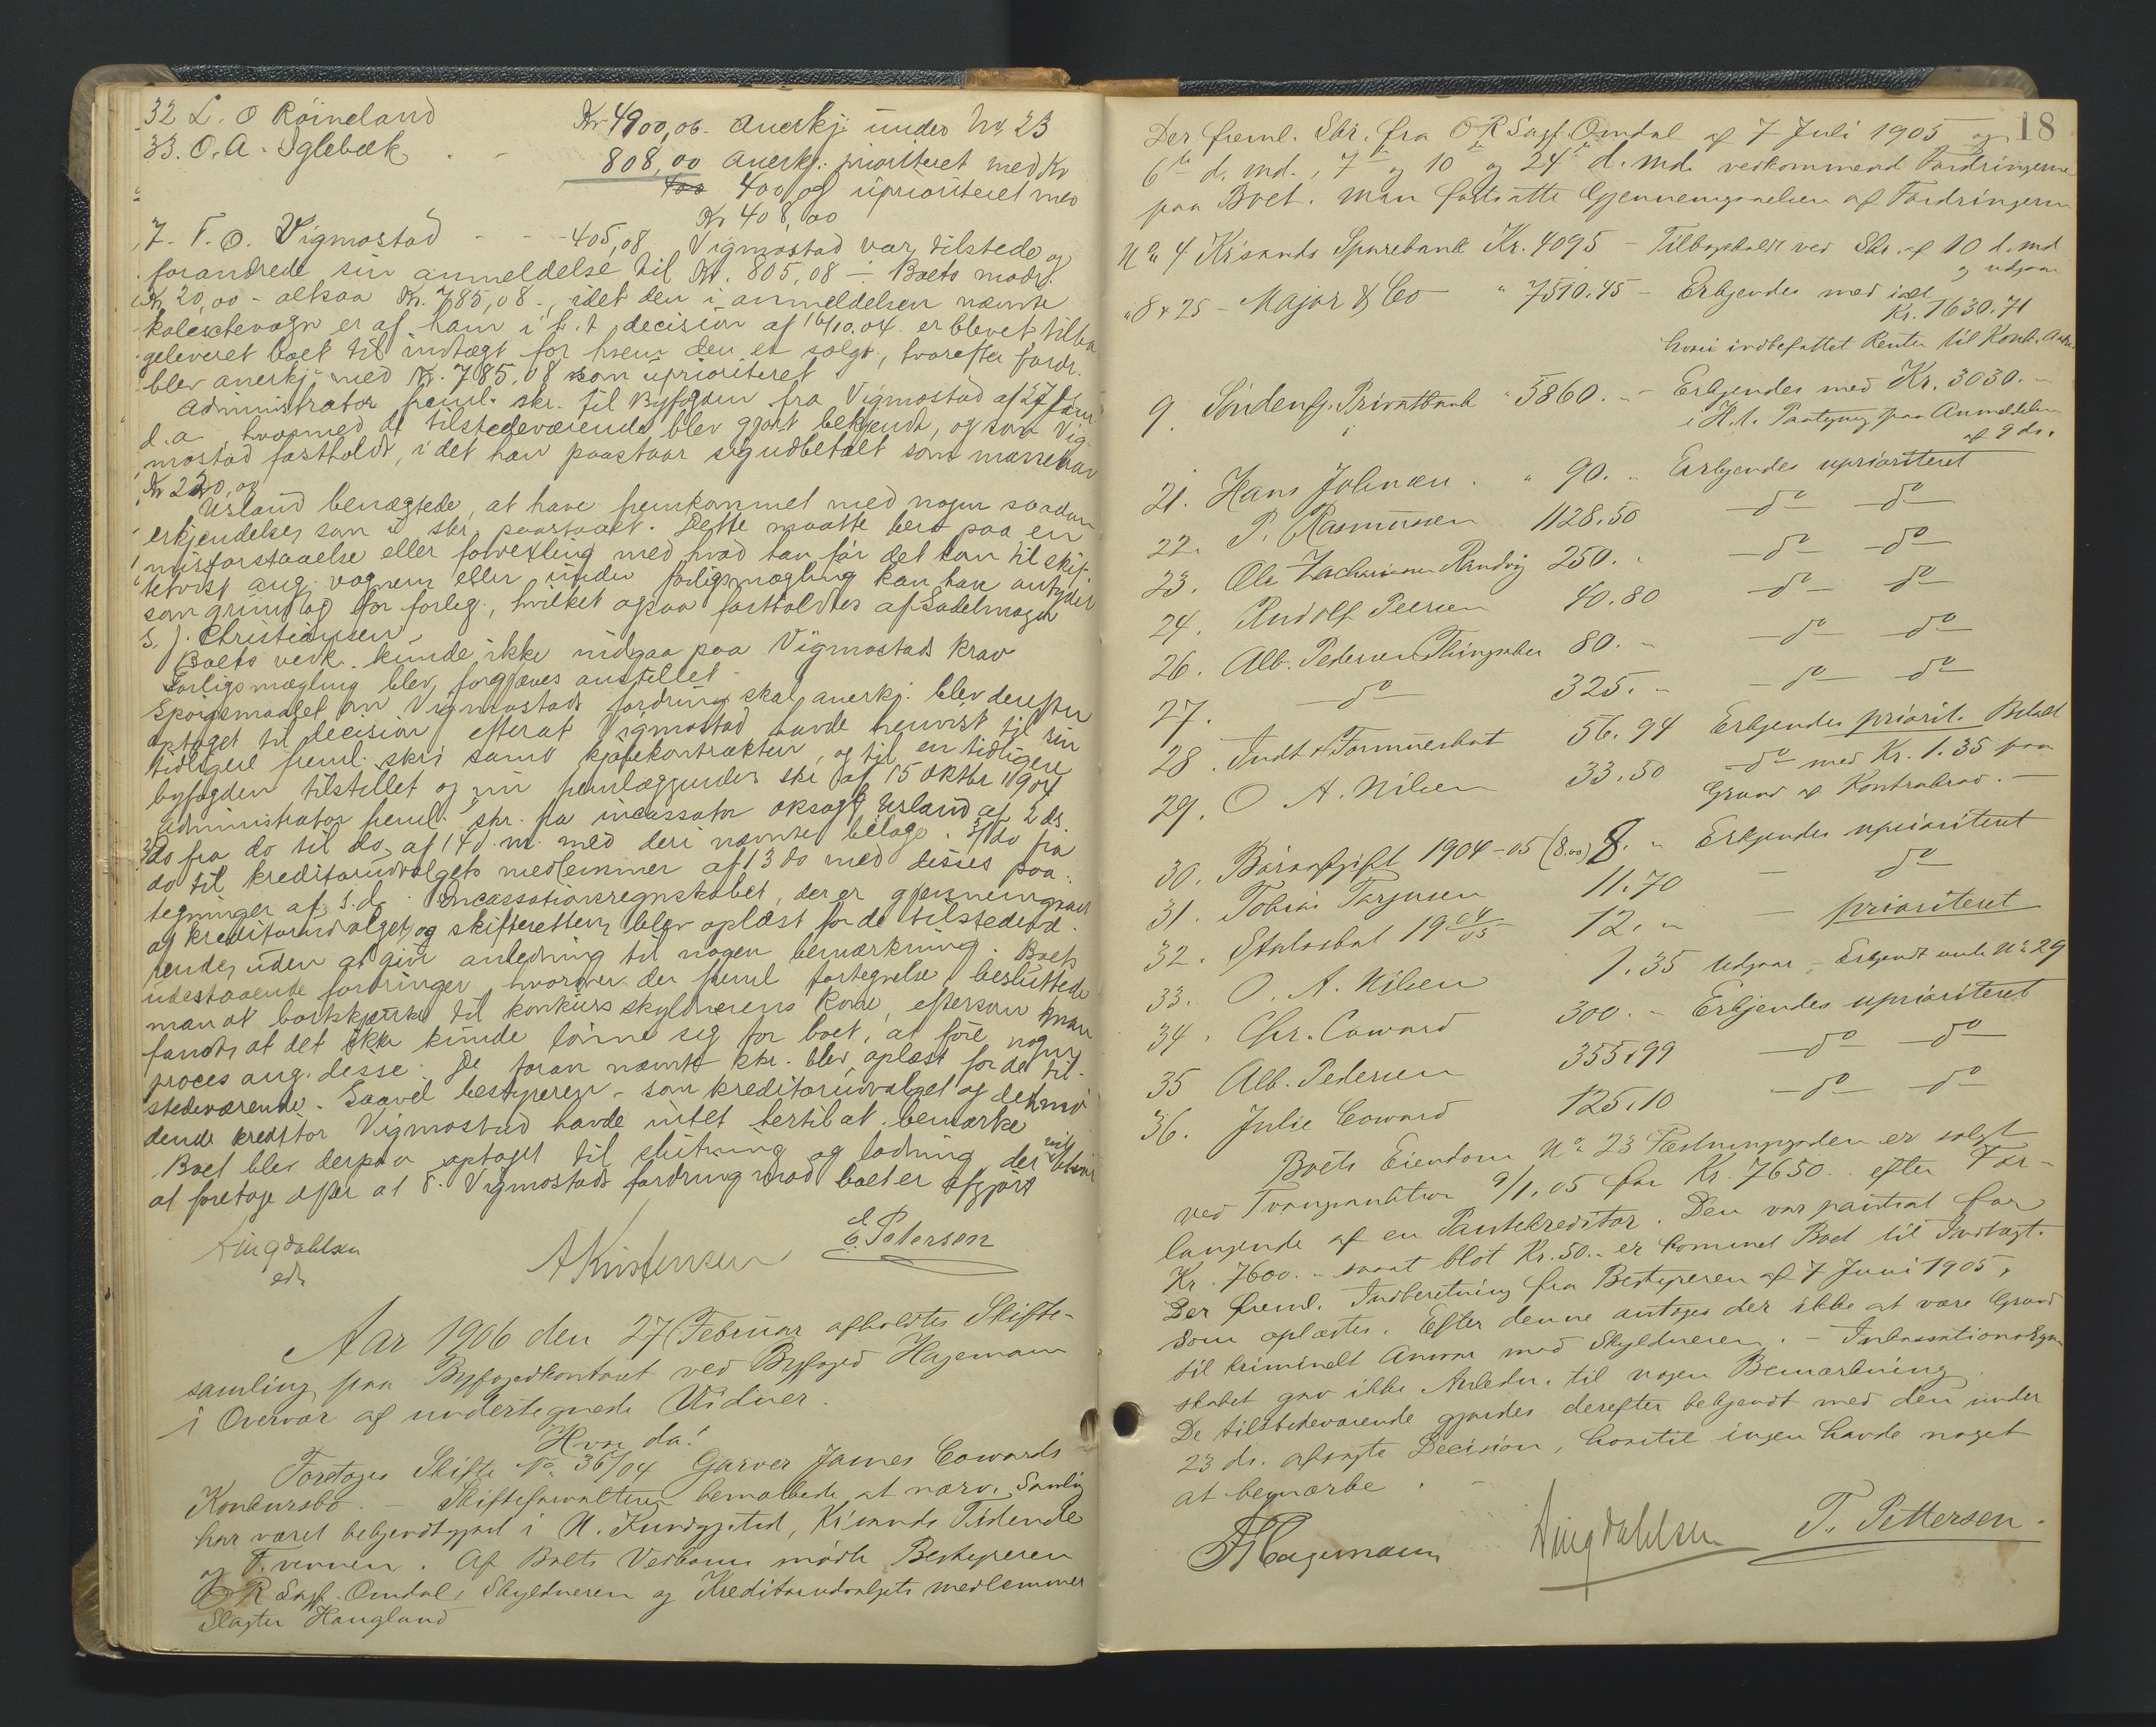 32 L. O Röineland Kr 4900,06. Anerkj. under No. 23
33. O. A. Iglebæk . - 808,00 Anerkj. prioriteret med Kr
400 400 og uprioriteret med
Kr 408,00
7. T. O. Vigmostad - - - 405,08 Vigmostad var tilstede og
forandrede sin anmeldelse til Kr. 805,08 ÷ Boets modr.
Kr 20,00 - altsaa Kr. 785,08 -, idet den i anmeldelsen nævnte
kaleschevogn er af ham i h. t. decision af 16/10.04. er blevet tilba
geleveret boet til indtægt for hvem den er solgt, hvorefter fordr.
blev anerkj. med Kr. 785,08 som uprioriteret
Administrator freml. skr. til Byfogden fra Vigmostad af 27 Jan
d. a. hvormed de tilstedeværende blev gjort bekjendt, og som Vig-
mostad fastholdt, i det han paastaar sig udbetalt som massekrav
Kr 220,00
Usland benægtede, at have fremkommet med nogen saadan
erkjendelse, som i skr. paastaaet. Dette maatte bero paa en
misforstaaelse eller forvexling med hvad han før det kom til skif-
tetvist ang. vognen eller under forligsmægling kan have antydet
som grundlag for forlig, hvilket ogsaa fastholdtes af Sadelmager
S. J. Christiansen.
Boets vedk. kunde ikke indgaa paa Vigmostads krav
Forligsmægling blev forgjæves anstillet.
Spørgsmaalet om Vigmostads fordring skal anerkj. blev derefter
optaget til decision efterat Vigmostad havde henvist til sin
tidligere freml. skr. samt kjøbekontrakten, og til en tidligere
byfogden tilstillet og nu fremlæggendes skr af 15 oktbr 1904
Administrator freml. skr. fra incassator oksagf. Usland af 2 ds.
do fra do til do, af 14 d. m. med deri nævnte bilage. do fra
do til kreditorudvalgets medlemmer af 13 do med disses paa-
tegninger af s. d. Incassationsregnskabet, der er gjennemgaaet
af kreditorudvalget og skifteretten, blev oplæst for de tilstedevæ-
rende, uden at give anledning til nogen bemærkning. Boets
udestaaende fordringer, hvorover der freml fortegnelse, besluttede
man at bortskjænke til konkursskyldnerens kone, eftersom man
fandt, at det ikke kunde lönne sig for boet, at före nogen
proces ang. disse. De foran nævnte skr. blev oplæst for de til-
stedeværende. Saavel bestyreren - som kreditorudvalget og den mö
dende kreditor Vigmostad havde intet hertil at bemærke
Boet blev derpaa optaget til slutning og lodning, der vil blive
at foretage efter at T. Vigmostads fordring mod boet er afgjort
Aug Dahlsen
edr
A Kristensen
E. Petersen
Aar 1906 den 27 Februar afholdtes Skifte-
samling paa Byfogedkontoret ved Byfoged Hagemann
i Overvær af undertegnede Vidner.
Hvor da!
Foretoges Skifte No. 36/04 Garver James Cowards
Konkursbo. - Skifteforvalteren bemærkede, at nærv. Samling
har været bekjendtgjort i N. Kundgj.tid, Kr'sands Tidende
og F. vennen. Af Boets Vedkom. mödte Bestyreren
O R Sagf. Omdal, Skyldneren og Kreditorudvalgets medlemmer
Slagter Haugland
18
Der freml. Skr. fra O R Sagf. Omdal af 7 Juli 1905 og
6te d. md., 7de og 10de og 24de d. md. vedkommend Fordringerne
paa Boet. Man fortsatte Gjennemgaaelsen af Fordringerne
No 4 Kr'sands Sparebank Kr. 4095 - Tilbagekaldt ved Skr. af 10 d. md
og udgaar
" 8 & 25 - Major & Co " 7510.45 - Erkjendes med ialt
Kr. 1630.71
hvori indbefattet Renter til Konk. Aabn.
9. Söndenfj. Privatbank " 5860. - Erkjendes med Kr. 3030. -
i H. t. Paategning paa Anmeldelsen
af 9 ds.
21. Hans Johnsen . " 90. " Erkjendes uprioriteret
22. P. Rasmussen 1128.50 - do - - do -
23. Ole Zachariassen Randvig 250. " - do - - do -
24. Rudolf Peersen 40.80 - do - - do -
26. Alb. Pedersen Flinggaber 80. - - do - - do -
27. - do - 325. - - do - - do -
28. Indt. & Formueskat 56.94 Erkjendes priorit. Betalt
29. O. A. Nilsen 33.50 - do - med Kr. 1.35 paa
Grund af Kontrakrav. -
30. Baaafgift 1904-05 (8.00) 8. " Erkjendes uprioriteret
31. Tobias Torjusen 11.70 - do
32. Skoleskat 1904/05 12. " - prioriteret
33. O. A. Nilsen 1.35 Udgaar - Erkjendt under No 29
34. Chr. Coward 300. - Erkjendes uprioriteret
35 Alb. Pedersen 355.99 - do - - do -
36. Julie Coward 125.10 - do - - do -
Boets Eiendom No 23 Fæstningsgaden er solgt
ved Tvangsauktion 9/1.05 for Kr. 7650. efter For-
langende af en Pantekreditor. Den var pantsat for
Kr. 7600. - saaat blot Kr. 50. - er kommet Boet til Indtægt.
Der freml. Indberetning fra Bestyreren af 7 Juni 1905,
som oplæstes. Efter denne antages der ikke at være Grund
til kriminelt Ansvar mod Skyldneren. - Inkassationsregn-
skabet gav ikke Anledn. til nogen Bemærkning.
De tilstedeværende gjordes derefter bekjendt med den under
23 ds. afsagte Decision, hvortil ingen havde noget
at bemærke.
F Hagemann
Aug Dahlsen
T. Pettersen.